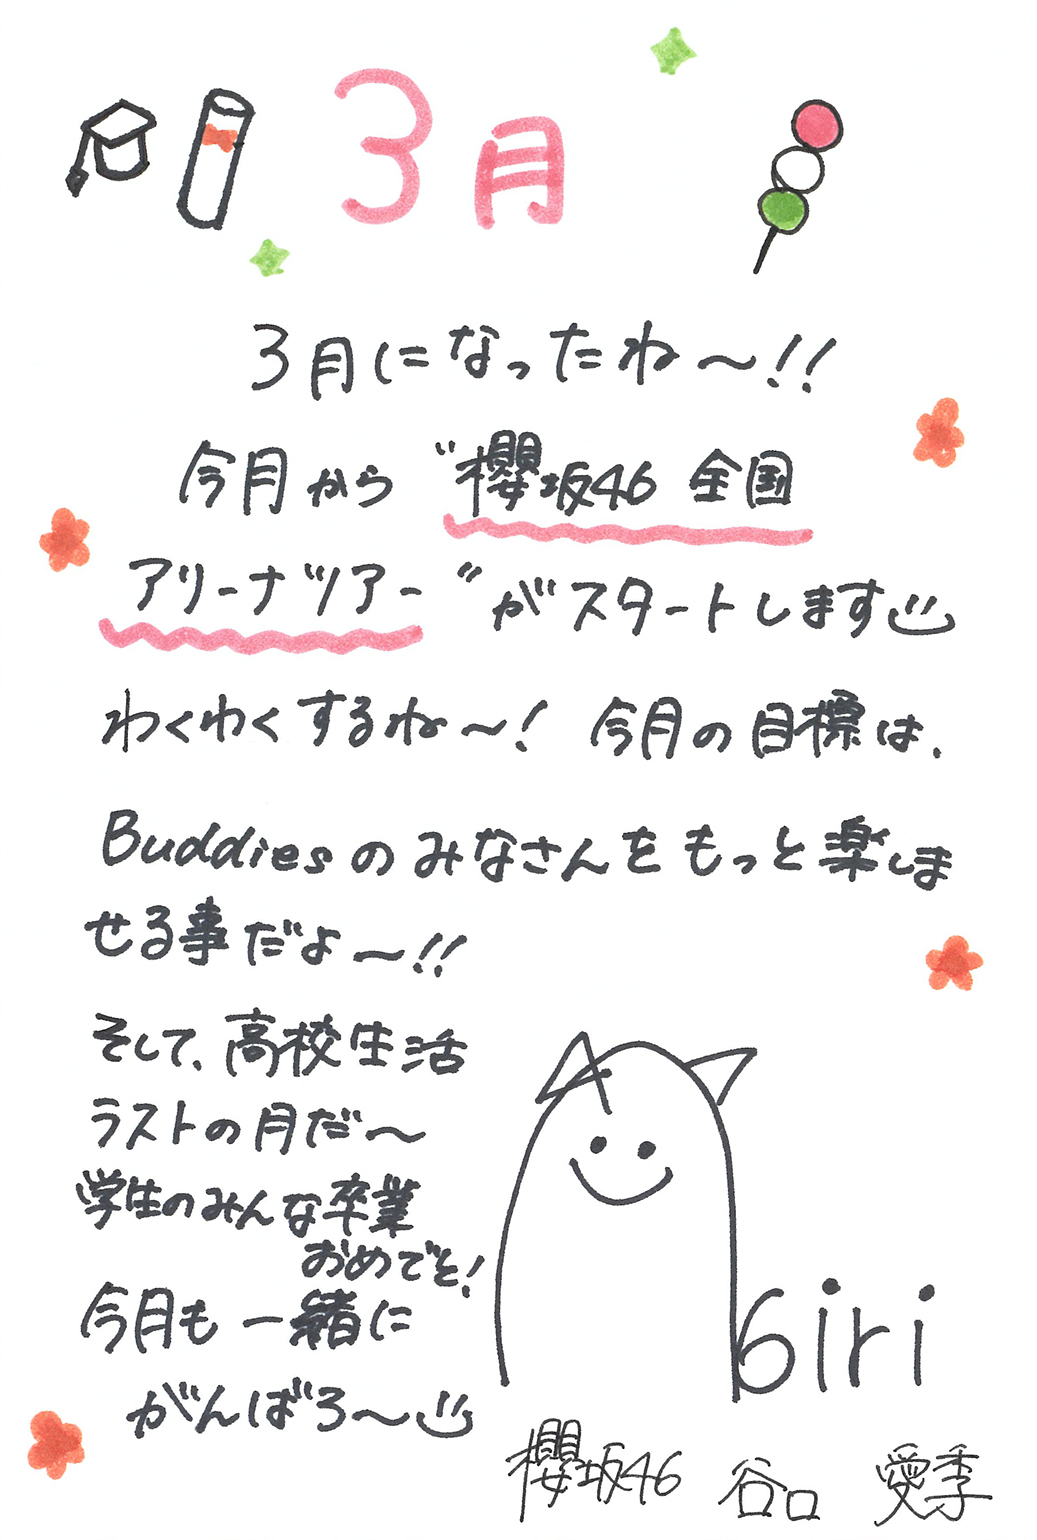 3月
3月になったね〜!!
今月から〝櫻坂46 全国
アリーナツアー〞がスタートします
わくわくするね〜! 今月の目標は、
Buddiesのみなさんをもっと楽しま
せる事だよ〜!!
そして、高校生活
ラストの月だ〜
学生のみんな卒業
おめでと!
今月も一緒に
がんばろ〜
Airi
櫻坂46 谷口 愛季